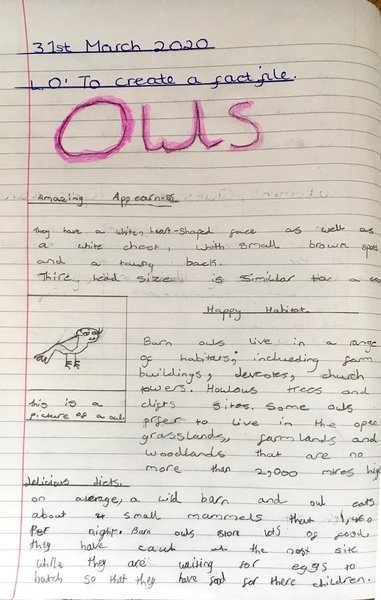 31st March 2020
L.O: To create a factfile.
Owls
Amazing Appearness
They have a white, heart-shaped face as well as
a white chest, whith small brown spots
and a tawny back.
Thire head size is similular to a
Happy Habitat.
Barn owls live in a range
of habitats, inclueding farm
buildings, devcotes, church
towers. Howlous trees and
clifts sites. Some owls
prfer to live in the open
grasslands, farmlands and
woodlands that are no
more than 2,000 mtres high
this is a
picture of a owl
delicious diets.
on average, a wild barn and owl eats
about 4 small mammels that 1,460
Per night. Barn owls store lots of food
they have caut at the nest site
while they are waiting for eggs to
hatch so that they have food for there children.